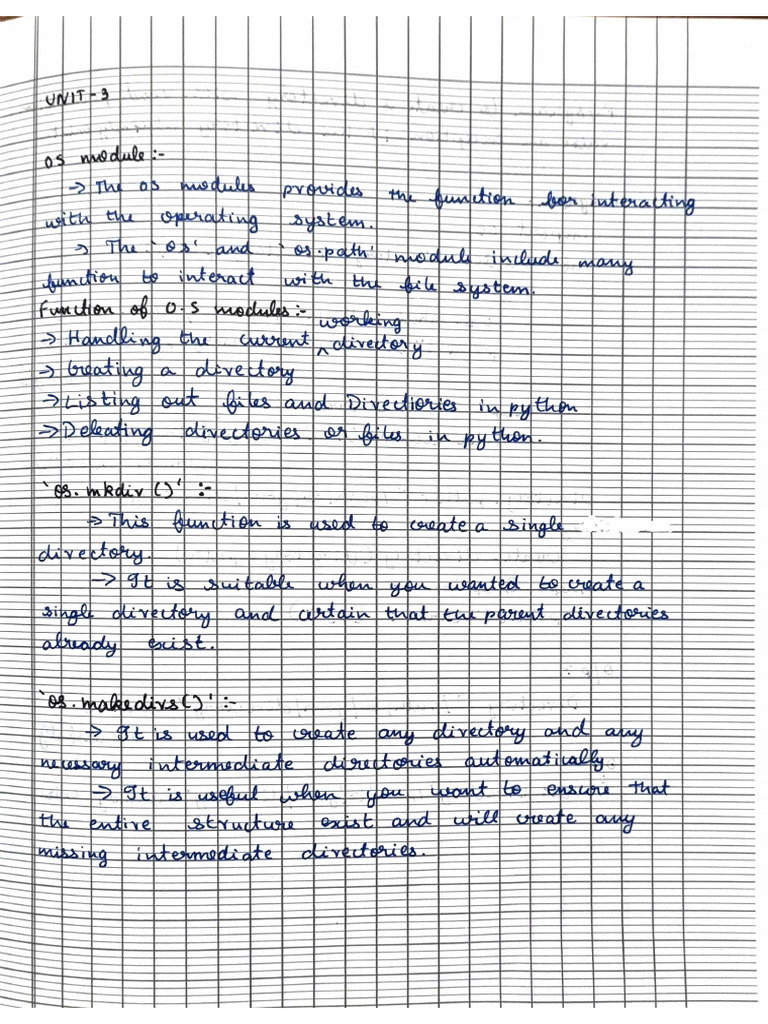 UNIT-3
OS module:-
→ The OS modules provides the function for interacting
with the operating system.
→ The 'os' and 'os.path' module include many
function to interact with the file system.
Function of O.S modules:-
working
→ Handling the current ^ directory
→ Creating a directory
→ Listing out files and Directiories in python
→ Deleating directories or files in python.
'os.mkdir()' :-
→ This function is used to create a single
directory.
→ It is suitable when you wanted to create a
single directory and certain that the parent directories
already exist.
'os.makedirs()' :-
→ It is used to create any directory and any
necessary intermediate directories automatically.
→ It is useful when you want to ensure that
the entire structure exist and will create any
missing intermediate directories.